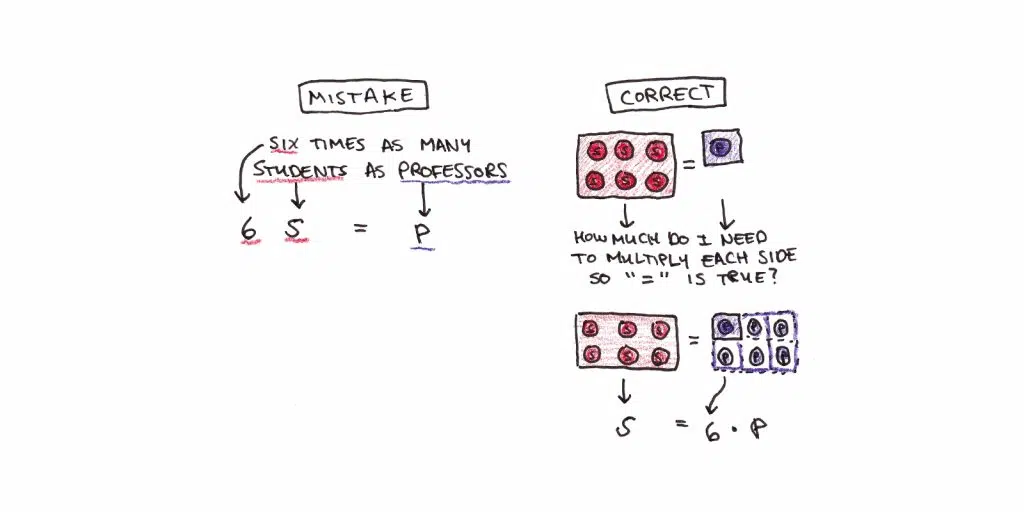 MISTAKE
SIX TIMES AS MANY
STUDENTS AS PROFESSORS
6 S = P
CORRECT
S S S
S S S
=
P
HOW MUCH DO I NEED
TO MULTIPLY EACH SIDE
SO "=" IS TRUE?
S S S
S S S
=
P P P
P P P
S = 6 · P